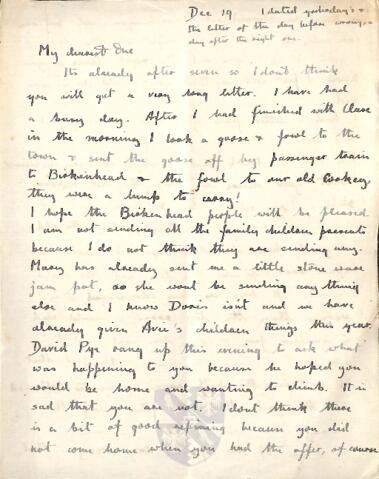 Dec 19 I dated yesterday's &
the letter of the day before wrong, a
day after the right one.
My dearest one
Its already after seven so I dont think
you will get a very long letter. I have had
a busy day. After I had finished with Clare
in the morning I took a goose & fowl to the
town & sent the goose off by passenger train
to Birkenhead & the fowl to our old Cookey,
they wear a lump to carry!
I hope the Birkenhead people will be pleased
I am not sending all the family children presents
because I do not think they are sending any.
Mary has already sent me a little stone ware
jam pot, so she wont be sending any thing
else and I know Doris isnt and we have
already given Avie's children things this year.
David Pye rang up this evening to ask what
was happening to you because he hoped you
would be home and wanting to climb. It is
sad that you are not. I dont think there
is a bit of good repining because you did
not come home when you had the offer, of course